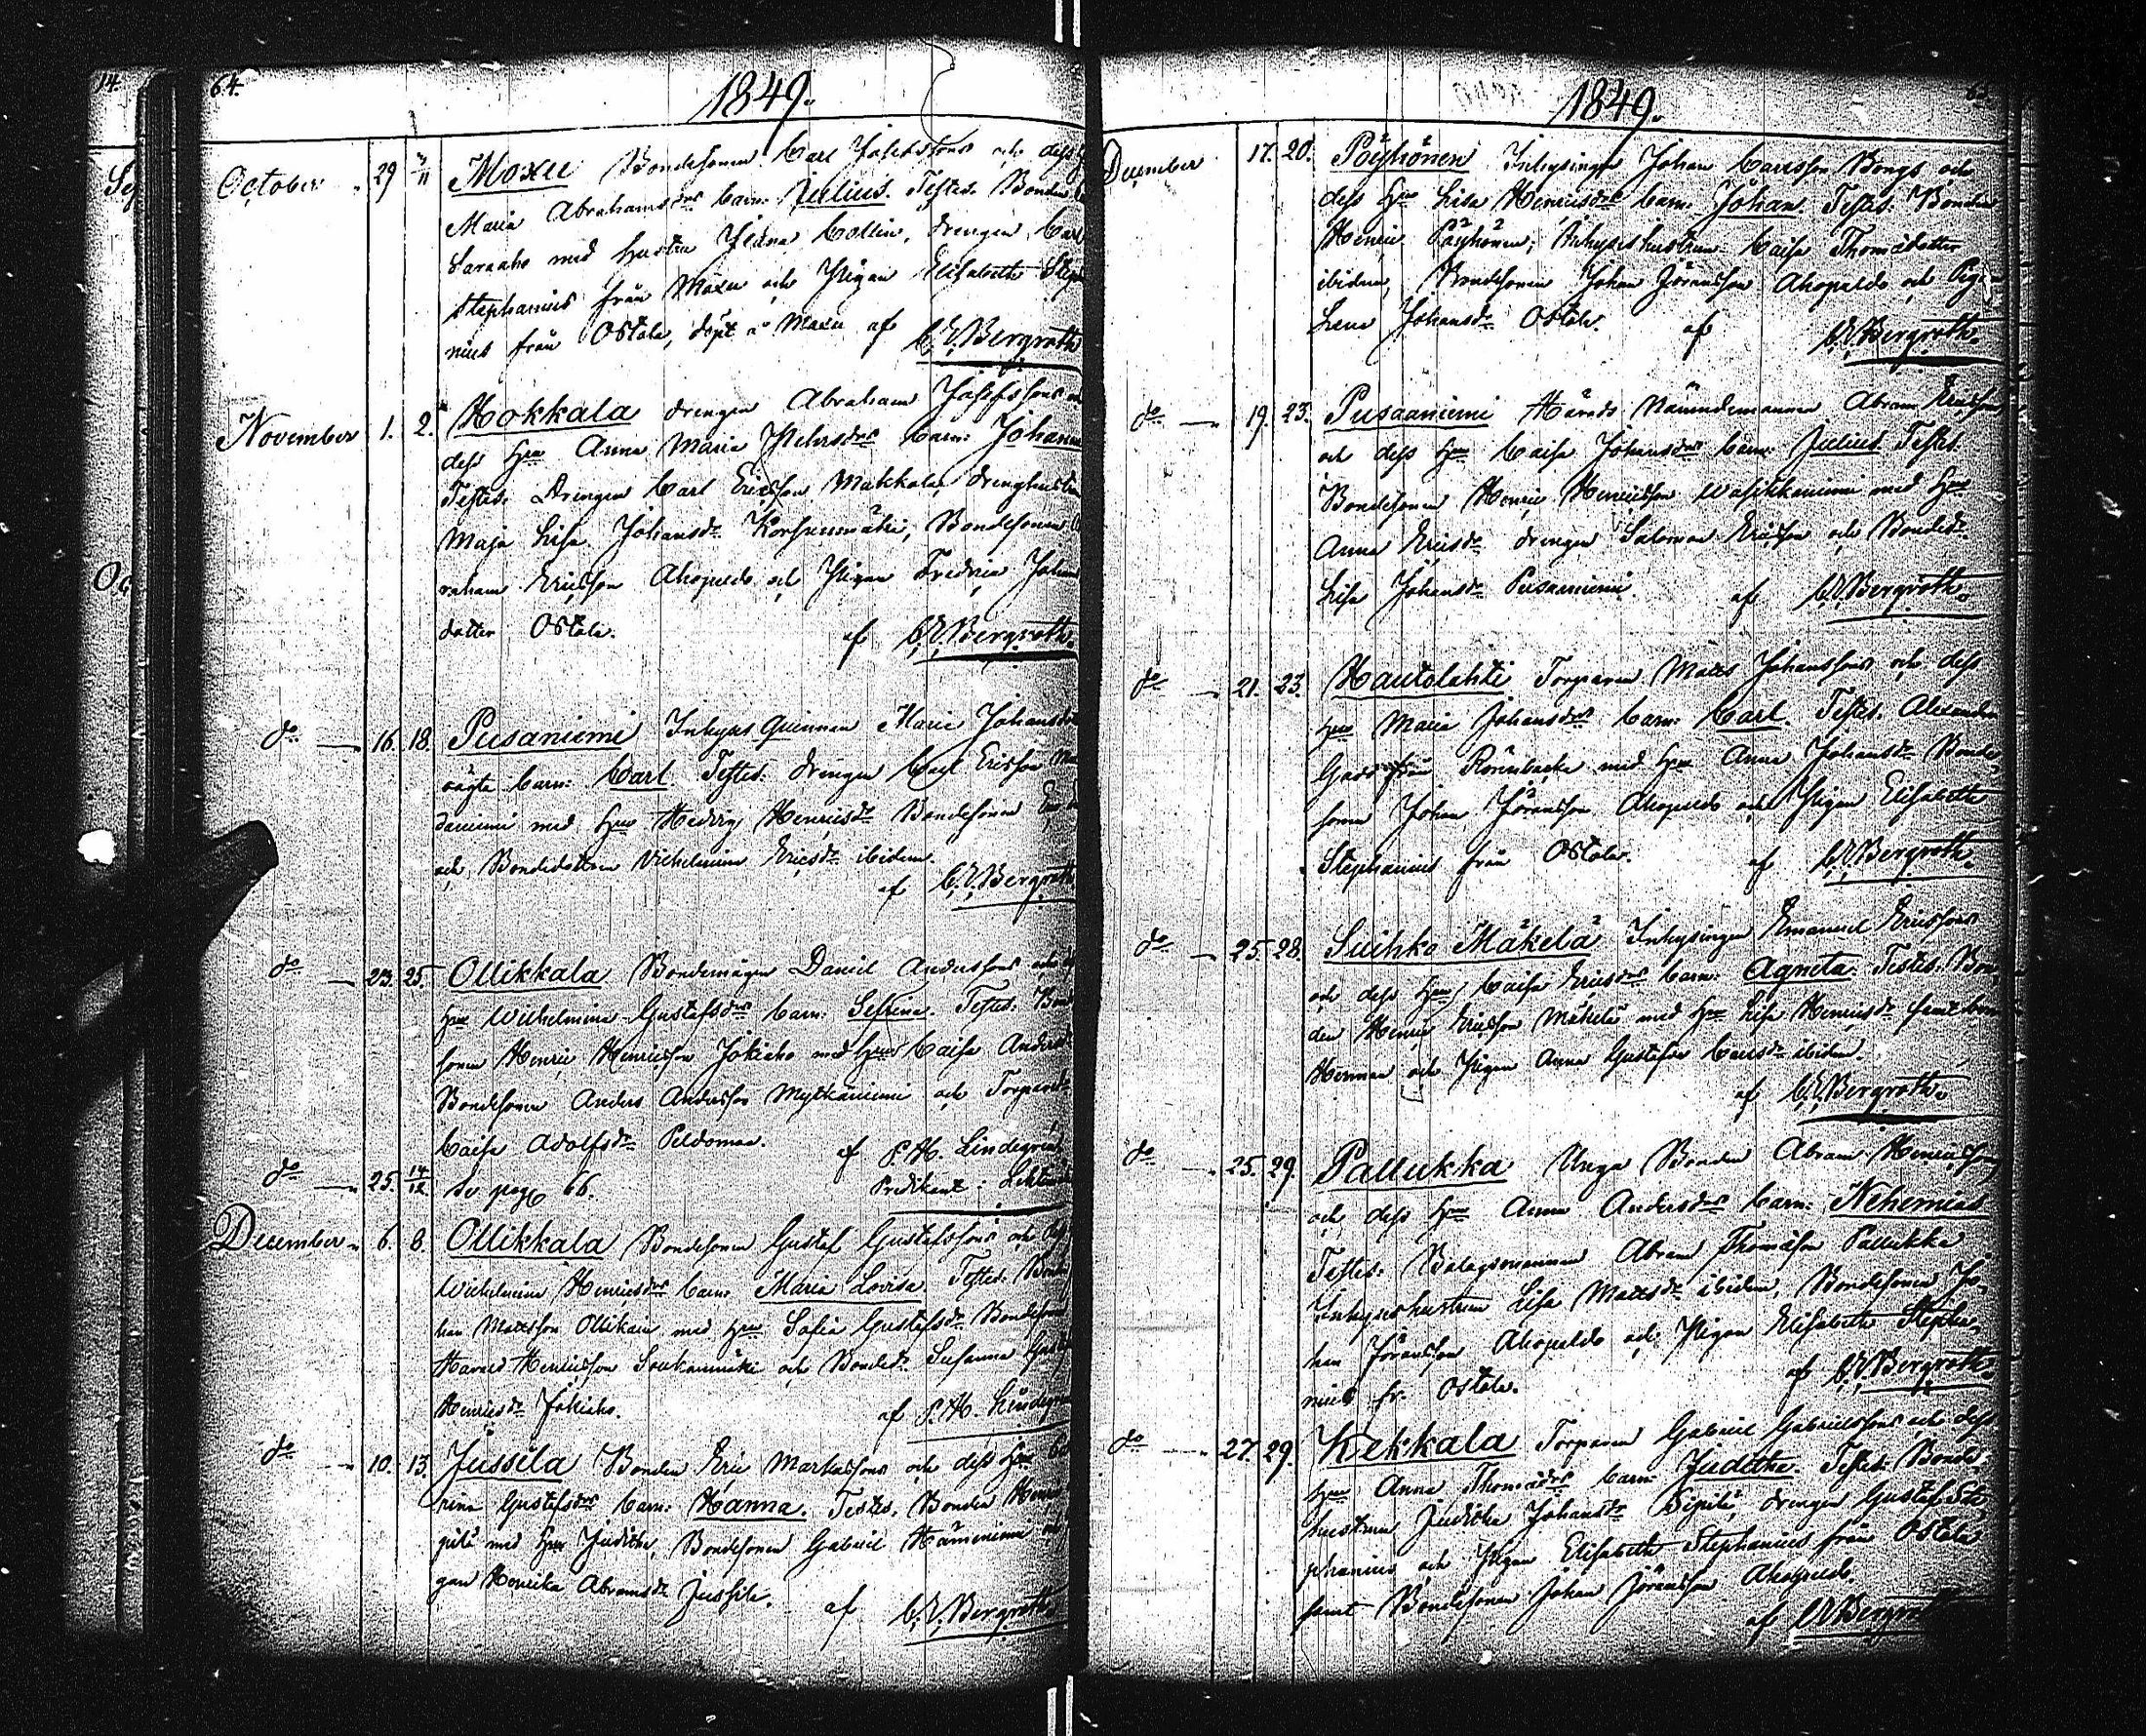 14.
64.
1849.
October 29 3/11 Moxu Bondesonen Carl Josefssons och dess
Maria Abrahamsdrs barn: Julius. Testes. Bonden
Saraaho med hustru Collin, drengen Carl
Stephanius från Moxu och Pigan Elisabeth Steph
nius från Ostola, döpt å Moxu af C.E. Bergroth
November 1. 2. Hokkala drengen Abraham Josefssons
dess Hru Anna Maria Petersdrs barn: Johanna
Testes. Drengen Carl Ericsson Makkola, drenghustru
Maja Lisa Johansdr Korhenmäki, Bondesonen
raham Ericsson Ahopelto och Pigan Fredrica Johans
dotter Ostola. af C.E. Bergroth.
do 16. 18. Pusaniemi Inhyses Quinnan Maria Johansdrs
oägta barn: Carl. Testes. drengen Carl Ericsson
saniemi med Hru Hedvig Henricsdr Bondesonen
och Bondedottern Vilhelmina Ericsdr ibidem.
af C.E. Bergroth
do 23. 25. Ollikkala Bondemågen Daniel Anderssons och
Hru Wilhelmina Gustafsdrs barn: Sefrina. Testes. Bonde
sonen Henric Henricsson Jokiaho med Hru Caisa Andersdr
Bondesonen Anders Andersson Mytkäniemi och Torparedr
Caisa Adolfsdr Peldomaa. af P.H. Lindegren
do 25. 14/12 Se pag 66. Predikant i
December 6. 8. Ollikkala Bondesonen Gustaf Gustafssons och
Wilhelmina Henricsdrs barn: Maria Lovisa. Testes. Bonde
han Mattsson Ollikain med Hru Sofia Gustafsdr Bondesonen
Henricsson Soukanmäki och Bondedr Susanna
Henricsdr Jokiaho. af P.H. Lindegren
do 10. 13. Jussila Bonden Eric Markussons och dess Hru
rina Gustafsdrs barn: Hanna. Testes. Bonden Henric
pilä med Hru Judith, Bondesonen Gabriel Hämeniemi och
gan Abramsdr Jussila. af C.E. Bergroth
1849.
December 17. 20. Pöyhönen Inhysingen Johan Carlsson Bongs och
dess Hru Lisa Henricsdrs barn: Johan. Testes. Bonden
Henric Pöyhönen, Inhyseshustrun Caisa Thomädotter
ibidem, Bondesonen Johan Jöransson Ahopelto och Pigan
Lena Johansdr Ostola. af C.E. Bergroth.
do 19. 23. Pusaaniemi Härads Nämndemannen Abram Ericssons
och dess Hru Caisa Johansdrs barn: Julius. Testes.
Bondesonen Henric Henricsson Wasikkaniemi med Hru
Anna Ericsdr drengen Salomon Ericsson och Bondedr
Lisa Johansdr Pusaaniemi. af C.E. Bergroth.
do 21. 23. Hautolahti Torparen Matts Johanssons och dess
Hru Maria Johansdrs barn: Carl. Testes. Alexander
från Rönnbacka med Hru Anna Johansdr Bonde
sonen Johan Jöransson Ahopelto och Pigan Elisabeth
Stephanius från Ostola. af C.E. Bergroth.
do 25. 28. Suihko Mäkelä Inhysingen Emanuel Ericssons
och dess Hru Caisa Ericsdrs barn: Agneta. Testes. Bon
den Henric Ericsson Mäkelä med Hru Lisa Henricsdr samt
Herman och Pigan Anna Gustafva Carlsdr ibidem.
af C.E. Bergroth.
do 25. 29. Pallukka Unga Bonden Abram Henricssons
och dess Hru Anna Andersdrs barn: Nehemias
Testes. Bolagsmannen Abram Thomasson Pallukka
Inhyseshustrun Lisa Mattsdr ibidem, Bondesonen Jo
han Jöransson Ahopelto och Pigan Elisabeth Stepha
nius fr. Ostola. af C.E. Bergroth.
do 27. 29. Kekkala Torparen Gabriel Gabrielssons och dess
Hru Anna Thomädrs barn: Judith. Testes. Bonde
hustrun Judith Johansdr Sipilä, drengen Gustaf Ste
phanius och Pigan Elisabeth Stephanius från Ostola
samt Bondesonen Johan Jöransson Ahopelto.
af C.E. Bergroth